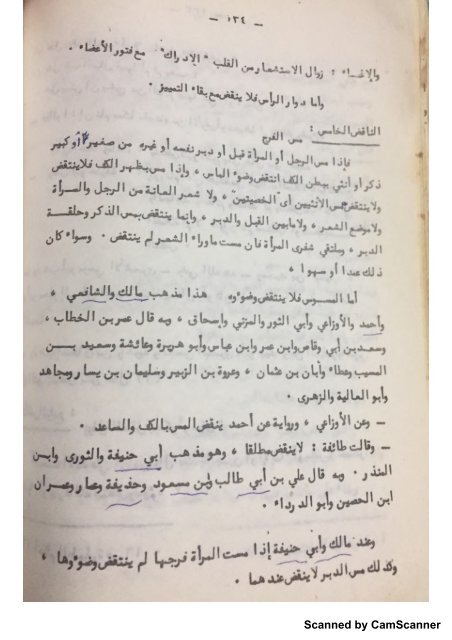 — ١٣٤ —
والاغماء : زوال الاستشعار من القلب "الادراك" مع فتور الأعضاء .
وأما دوار الرأس فلا ينقض مع بقاء التمييز .
الناقض الخامس :
مس الفرج
فإذا مس الرجل أو المرأة قبل أو دبر نفسه أو غيره من صغير أو كبير
ذكر أو أنثي ببطن الكف انتقض وضوء الماس ، وإذا مس بظهر الكف فلا ينتقض
ولا ينتقض مس الأنثيين أى الخصيتين ، ولا شعر العانة من الرجل والمرأة
ولا موضع الشعر ، ولا مابين القبل والدبر ، وانما ينتقض بمس الذكر وحلقة
الدبر ، وملتقي شفرى المرأة فان مست ماوراء الشعر لم ينتقض . وسواء كان
ذلك عمدا أو سهوا ،
أما الممسوس فلا ينتقض وضوءه هذا مذهب مالك والشافعي ،
وأحمد والأوزاعي وأبي الثور والمزني وإسحاق ، وبه قال عمر بن الخطاب ،
وسعد بن أبي وقاص وابن عمر وابن عباس وأبو هريرة وعائشة وسعيد بن
المسيب وعطاء وأبان بن عثمان ، وعروة بن الزبير وسليمان بن يسار ومجاهد
وأبو العالية والزهرى .
— وعن الأوزاعي ، ورواية عن أحمد ينقض المس بالكف والساعد .
— وقالت طائفة : لا ينقض مطلقا ، وهو مذهب أبي حنيفة والثورى وابن
المنذر . وبه قال علي بن أبي طالب وابن مسعود وحذيفة وعمار وعمران
ابن الحصين وأبو الدرداء .
وعند مالك وأبي حنيفة إذا مست المرأة فرجها لم ينتقض وضوءها ،
وكذلك مس الدبر لا ينقض عندهما .
Scanned by CamScanner